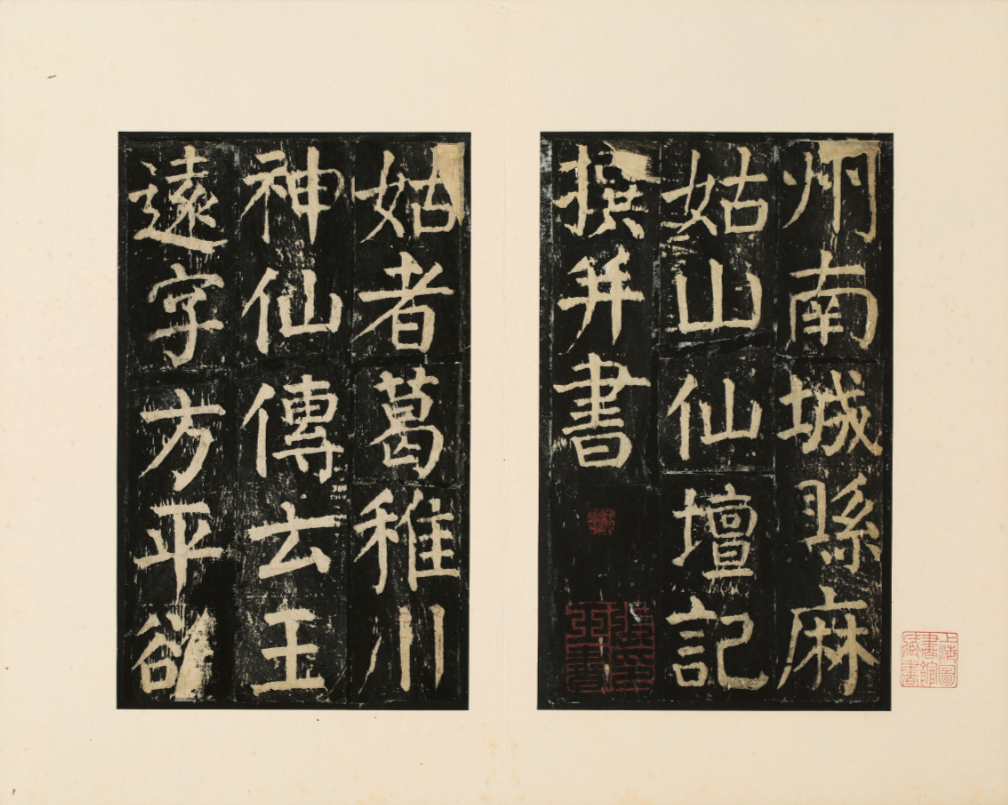 州南城縣麻
姑山仙壇記
撰并書
姑者葛稚川
神仙傳云王
遠字方平欲
上海圖
書館
藏書